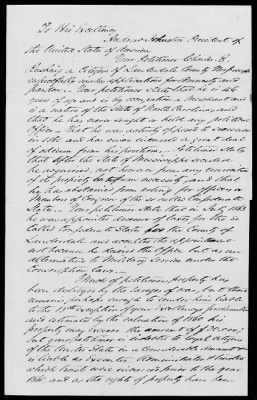 To His Excellency
Andrew Johnson President of
the United States of America
Your Petitioner Charles E.
Rushing a citizen of Lauderdale County Mississippi
respectfully makes application for Amnesty and
pardon. Your petitioner states that he is
years of age and is by occupation a Merchant and
is a native of the State of North Carolina, and
that he has never sought or held any political
Office. That he was actively opposed to secession
in 1861 and has ever since a great deal
of odium from his position. Petitioner states
that after the State of Mississippi seceded
he sojourned, not however from any conviction
of its propriety, but from necessity and that
he has abstained from voting for officers or
Members of Congress of the so called Confederate
States. Your petitioner states that in July 1863
he was appointed assessor of taxes for the so
called Confederate States for the County of
Lauderdale and accepted the appointment
not because he desired the office but as an
alternative to Military service under the
Conscription laws.
Much of petitioners property has
been destroyed by the ravages of war, but there
remains perhaps enough to render him liable
to the 13th exception of your Excellency's proclamation
and estimated by the valuation of 1860 his
property may exceed the amount of $20.000;
but your petitioner is indebted to loyal citizens
of the United States in a considerable amount
is liable as Executor Administrator &
which trusts were incurred prior to the year
1861 and as the rights of property have been